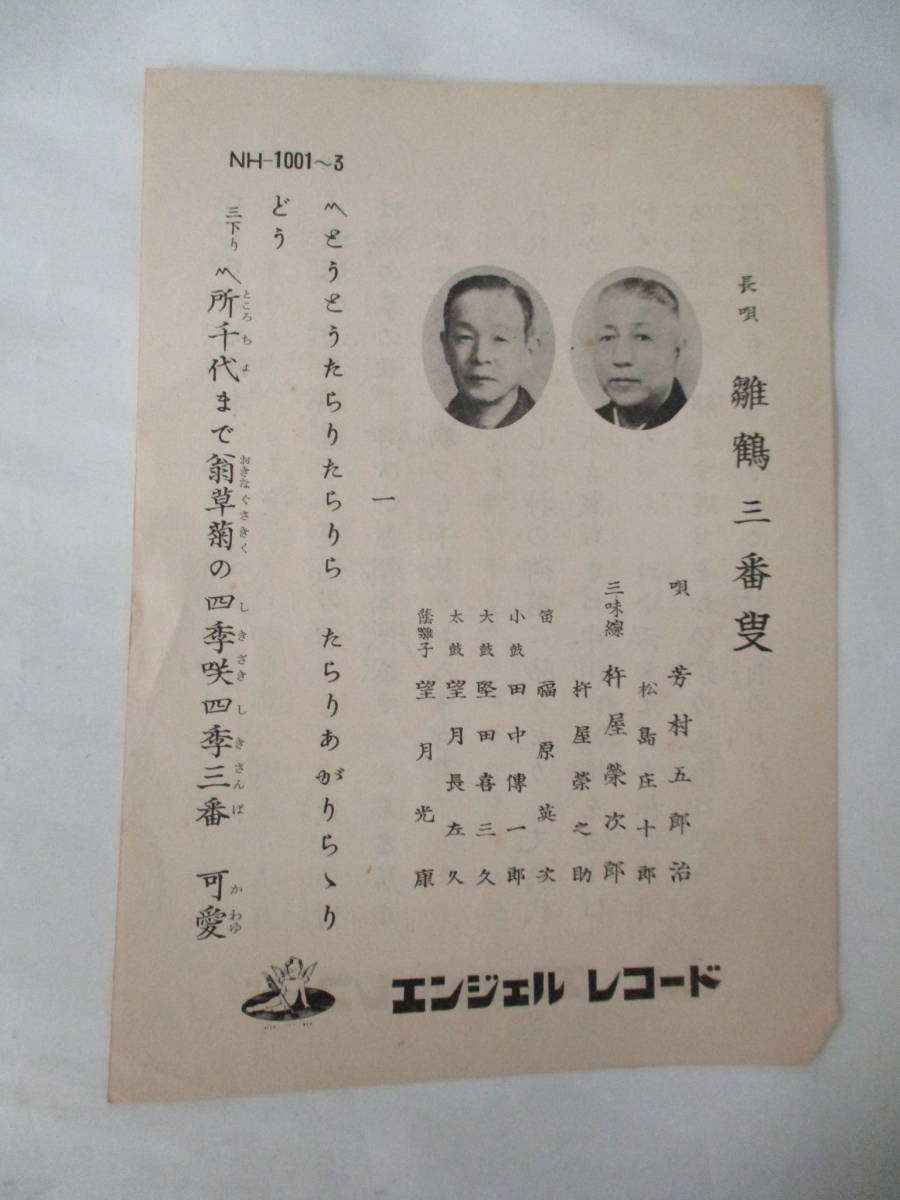 NH-1001~3
長唄 雛鶴三番叟
唄 芳村五郎治
松島庄十郎
三味線 杵屋榮次郎
杵屋栄之助
笛 福原英次
小鼓 田中傳一郎
大鼓 堅田喜三久
太鼓 望月長左久
蔭囃子 望月光康
一
〽とうとうたらりたらりら たらりあがりらゝり
どう
三下り 〽所千代まで翁草菊の四季咲四季三番 可愛
ところちよ おきなぐさきく しきざきしきさんば かわゆ
エンジェル レコード